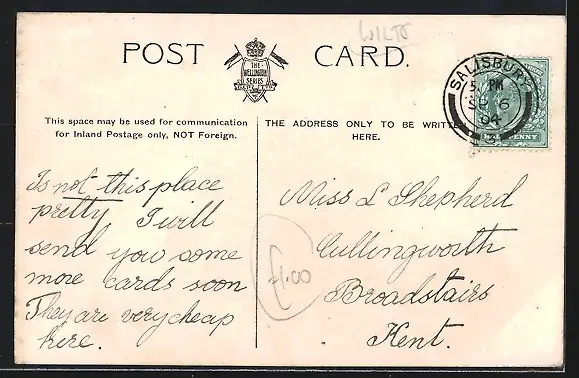 WILTS
POST CARD.
THE
WELLINGTON
SERIES
This space may be used for communication
for Inland Postage only, NOT Foreign.
THE ADDRESS ONLY TO BE WRITTEN
HERE.
SALISBURY
5 PM
SP 6
04
3
HALFPENNY
Is not this place
pretty I will
send you some
more cards soon
They are very cheap
here.
Miss L Shepherd
Cullingworth
Broadstairs
Kent.
£1.00